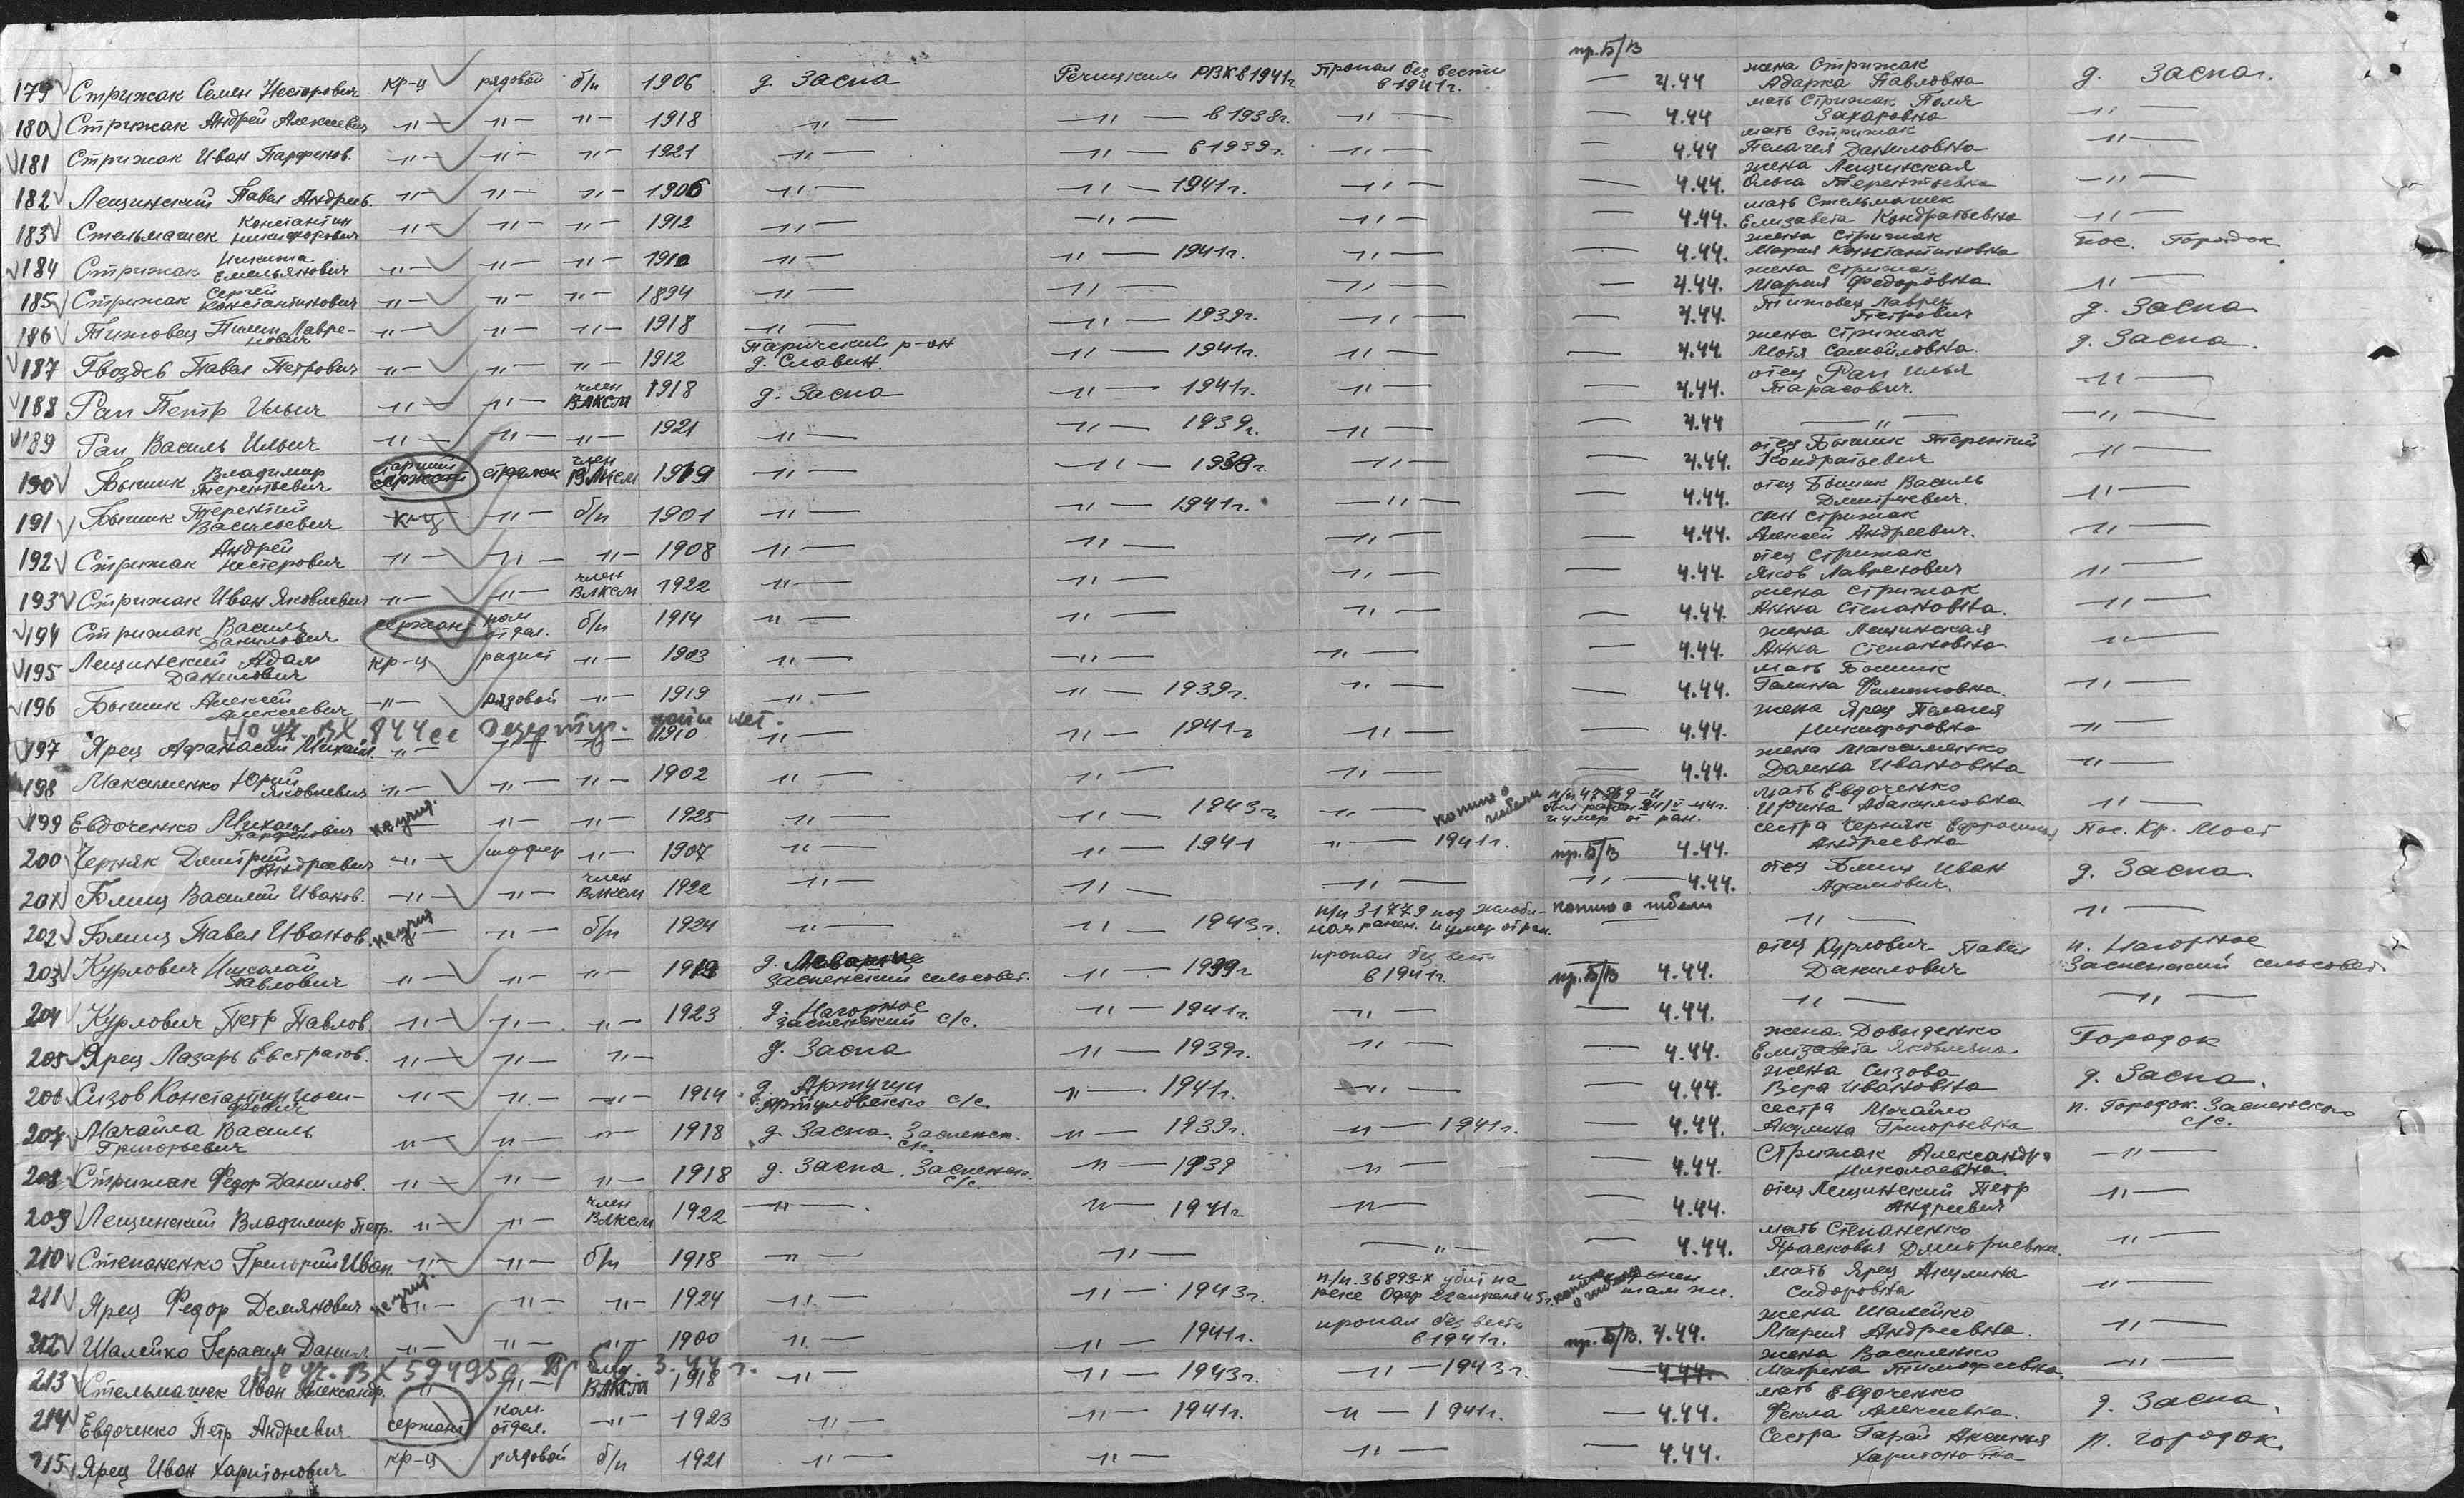 пр. Б/В
179 Стрижак Семен Несторович кр-ц рядовой б/п 1906 д. Заспа Речицким РВК в 1941г. Пропал без вести в 1941г. — 4.44 жена Стрижак Адаржа Павловна д. Заспа.
180 Стрижак Андрей Алексеевич -"- -"- -"- 1918 -"- -"- в 1938г. -"- — 4.44 мать Стрижак Поля Захаровна -"-
181 Стрижак Иван Парфенов. -"- -"- -"- 1921 -"- -"- в 1939г. -"- — 4.44 мать Стрижак Пелагея Даниловна -"-
182 Лещинский Павел Андреев. -"- -"- -"- 1906 -"- -"- 1941г. -"- — 4.44. жена Лещинская Ольга Терентьевна -"-
183 Стельмашек Константин Никифорович -"- -"- -"- 1912 -"- -"- -"- — 4.44. мать Стельмашек Елизавета Кондратьевна -"-
184 Стрижак Никита Емельянович -"- -"- -"- 1910 -"- -"- 1941г. -"- — 4.44. жена Стрижак Мария Константиновна пос. Городок
185 Стрижак Сергей Константинович -"- -"- -"- 1894 -"- -"- -"- — 4.44. жена Стрижак Мария Федоровна -"-
186 Титовец Пимен Лавренович -"- -"- -"- 1918 -"- -"- 1939г. -"- — 4.44. Титовец Лаврен Петрович д. Заспа
187 Гвоздев Павел Петрович -"- -"- -"- 1912 Паричский р-он д. Славин. -"- 1941г. -"- — 4.44 жена Стрижак Мотя Самойловна. д. Заспа.
188 Рап Петр Ильич -"- -"- член ВЛКСМ 1918 д. Заспа -"- 1941г. -"- — 4.44. отец Рап Илья Тарасович. -"-
189 Рап Василь Ильич -"- -"- -"- 1921 -"- -"- 1939г. -"- — 4.44 -"- -"-
190 Бышик Владимир Терентьевич старший сержант стрелок член ВЛКСМ 1919 -"- -"- 1939г. -"- — 4.44. отец Бышик Терентий Кондратьевич -"-
191 Бышик Терентий Васильевич к-ц -"- б/п 1901 -"- -"- 1941г. -"- — 4.44. отец Бышик Василь Дмитриевич. -"-
192 Стрижак Андрей Нестерович -"- -"- -"- 1908 -"- -"- -"- — 4.44. сын Стрижак Алексей Андреевич. -"-
193 Стрижак Иван Яковлевич -"- -"- член ВЛКСМ 1922 -"- -"- -"- — 4.44. отец Стрижак Яков Лавренович -"-
194 Стрижак Василь Данилович сержант ком отдел. б/п 1914 -"- -"- -"- — 4.44. жена Стрижак Анна Степановна. -"-
195 Лещинский Адам Данилович кр-ц радист -"- 1903 -"- -"- -"- — 4.44. жена Лещинская Анна Степановна. -"-
196 Бышик Алексей Алексеевич -"- рядовой -"- 1919 -"- -"- 1939г. -"- — 4.44. мать Бышик Галина -"-
197 Ярец Афанасий Михайл. -"- -"- -"- 1910 -"- -"- 1941г -"- — 4.44. жена Ярец Пелагея Никифоровна -"-
198 Максименко Юрий Яковлевич -"- -"- -"- 1902 -"- -"- -"- — 4.44. жена Максименко Домна Ивановна -"-
199 Евдоченко Михаил Парфенович -"- -"- 1925 -"- -"- 1943г. -"- умер от ран. мать Евдоченко Ирина Абакумовна -"-
200 Черняк Дмитрий Андреевич -"- шофер -"- 1907 -"- -"- 1941 -"- 1941г. пр. Б/В 4.44. сестра Черняк Ефросинья Андреевна Пос. Кр. Мост
201 Блищ Василий Иванов. -"- -"- член ВЛКСМ 1922 -"- -"- -"- -"- 4.44. отец Блищ Иван Адамович. д. Заспа
202 Блищ Павел Иванов. -"- б/п 1924 -"- -"- 1943г. п/п 31779 под Жлобином ранен. и умер от ран. -"- -"-
203 Курлович Николай Павлович -"- -"- -"- Заспенский сельсовет. -"- 1939г пропал без вести в 1941г. пр. Б/В 4.44. отец Курлович Павел Данилович п. Нагорное Заспенский сельсовет
204 Курлович Петр Павлов. -"- -"- -"- 1923 д. Нагорное Заспенский с/с. -"- 1941г. -"- — 4.44. -"- -"-
205 Ярец Лазарь Евстратов. -"- -"- -"- д. Заспа -"- 1939г. -"- — 4.44. жена Довыденко Елизавета Яковлевна Городок
206 Сизов Константин Иосифович -"- -"- -"- 1914 д. Артуки с/с. -"- 1941г. -"- — 4.44. жена Сизова Вера Ивановна д. Заспа.
207 Мачайла Василь Григорьевич -"- -"- -"- 1918 д. Заспа. Заспенск. с/с. -"- 1939г. -"- 1941г. — 4.44. сестра Мачайло Акулина Григорьевна п. Городок. Заспенского с/с.
208 Стрижак Федор Данилов. -"- -"- -"- 1918 д. Заспа. Заспенск. с/с. -"- 1939 -"- — 4.44. Стрижак Александра Николаевна. -"-
209 Лещинский Владимир Петр. -"- -"- член ВЛКСМ 1922 -"- -"- 1941г -"- — 4.44. отец Лещинский Петр Андреевич -"-
210 Степаненко Григорий Иван. -"- -"- б/п 1918 -"- -"- -"- — 4.44. мать Степаненко Прасковья Дмитриевна. -"-
211 Ярец Федор Демянович -"- -"- -"- 1924 -"- -"- 1943г. п/п. 36893-х убит на реке Одер 22 апреля 45г. там же. мать Ярец Акулина Сидоровна -"-
212 Шалейко Герасим Данил -"- -"- -"- 1900 -"- -"- 1941г. пропал без вести в 1941г. пр. Б/В. 4.44. жена Шалейко Мария Андреевна. -"-
213 Стельмашек Иван Александр. -"- ВЛКСМ 1918 -"- -"- 1943г. -"- 1943г. — 4.44. жена Василенко Матрена Тимофеевна. -"-
214 Евдоченко Петр Андреевич. сержант ком. отдел. -"- 1923 -"- -"- 1941г. -"- 1941г. — 4.44. мать Евдоченко Фекла Алексеевна. д. Заспа.
215 Ярец Иван Харитонович кр-ц рядовой б/п 1921 -"- -"- -"- — 4.44. Сестра Гарай Аксинья Харитоновна п. городок.